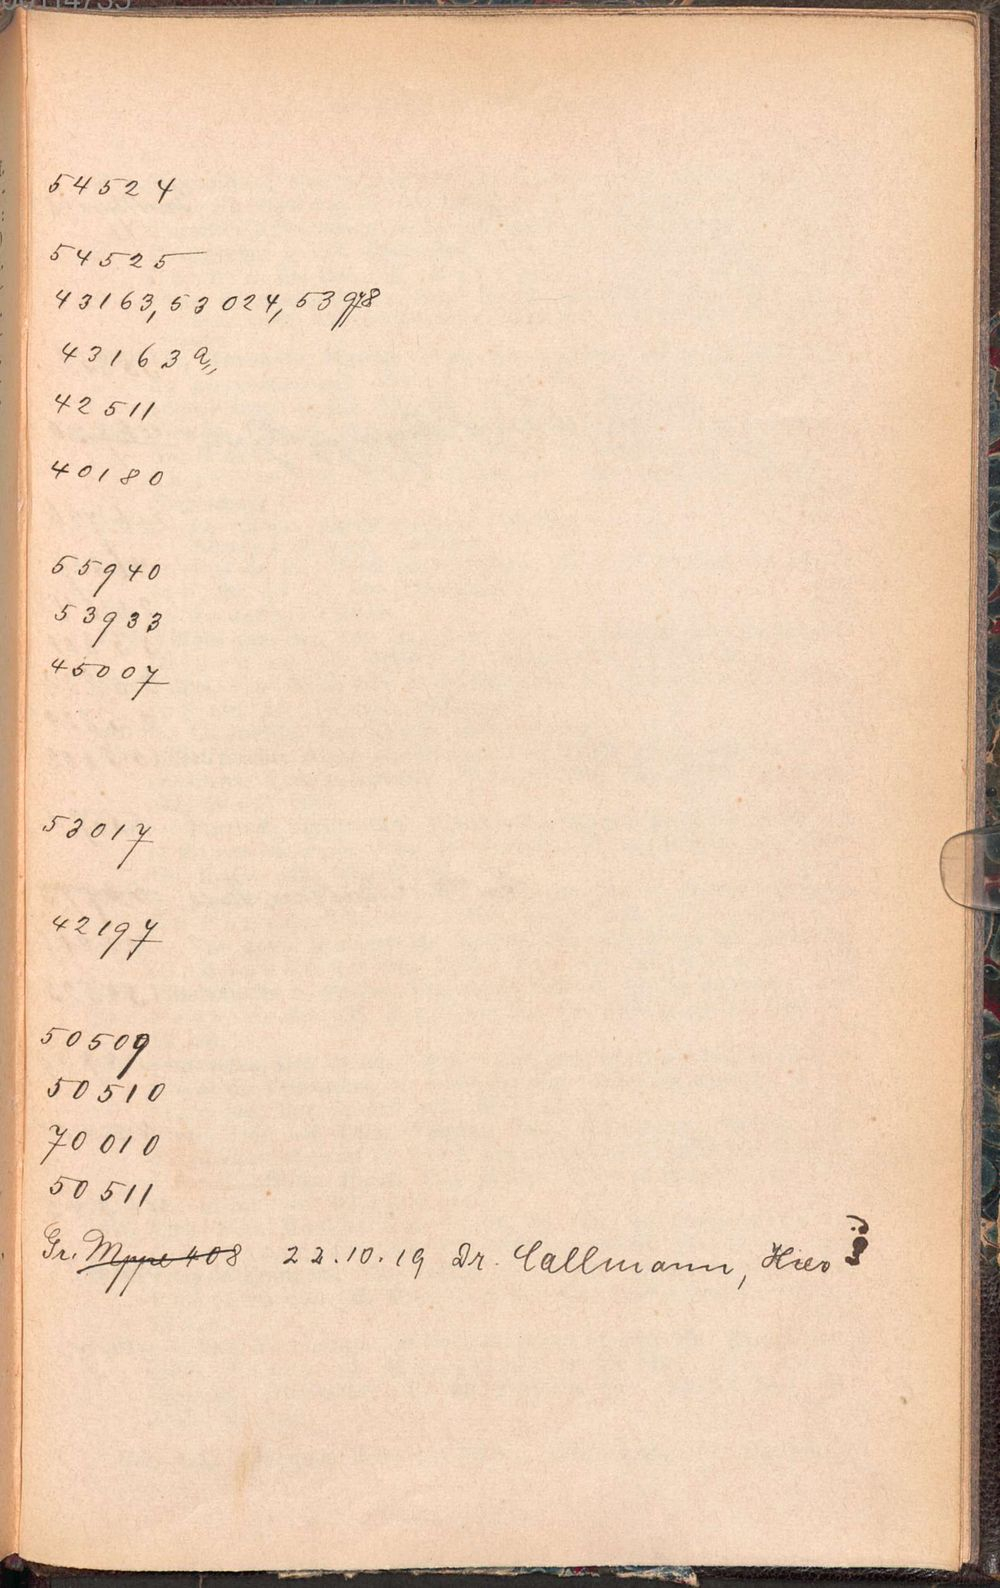 54524
54525
43163, 53024, 53978
43163 a,,
42511
40180
55940
53933
45007
53017
42197
50509
50510
70010
50511
Gr. Mppe 408 22.10.19 Dr. Callmann, Hier